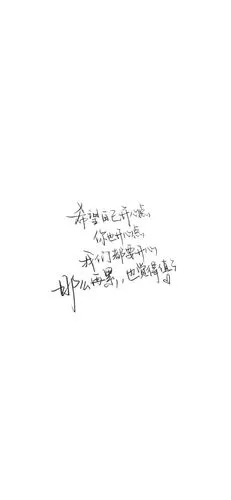 希望自己开心点,
你也开心点,
我们都要开心
那么再累,,也觉得值了